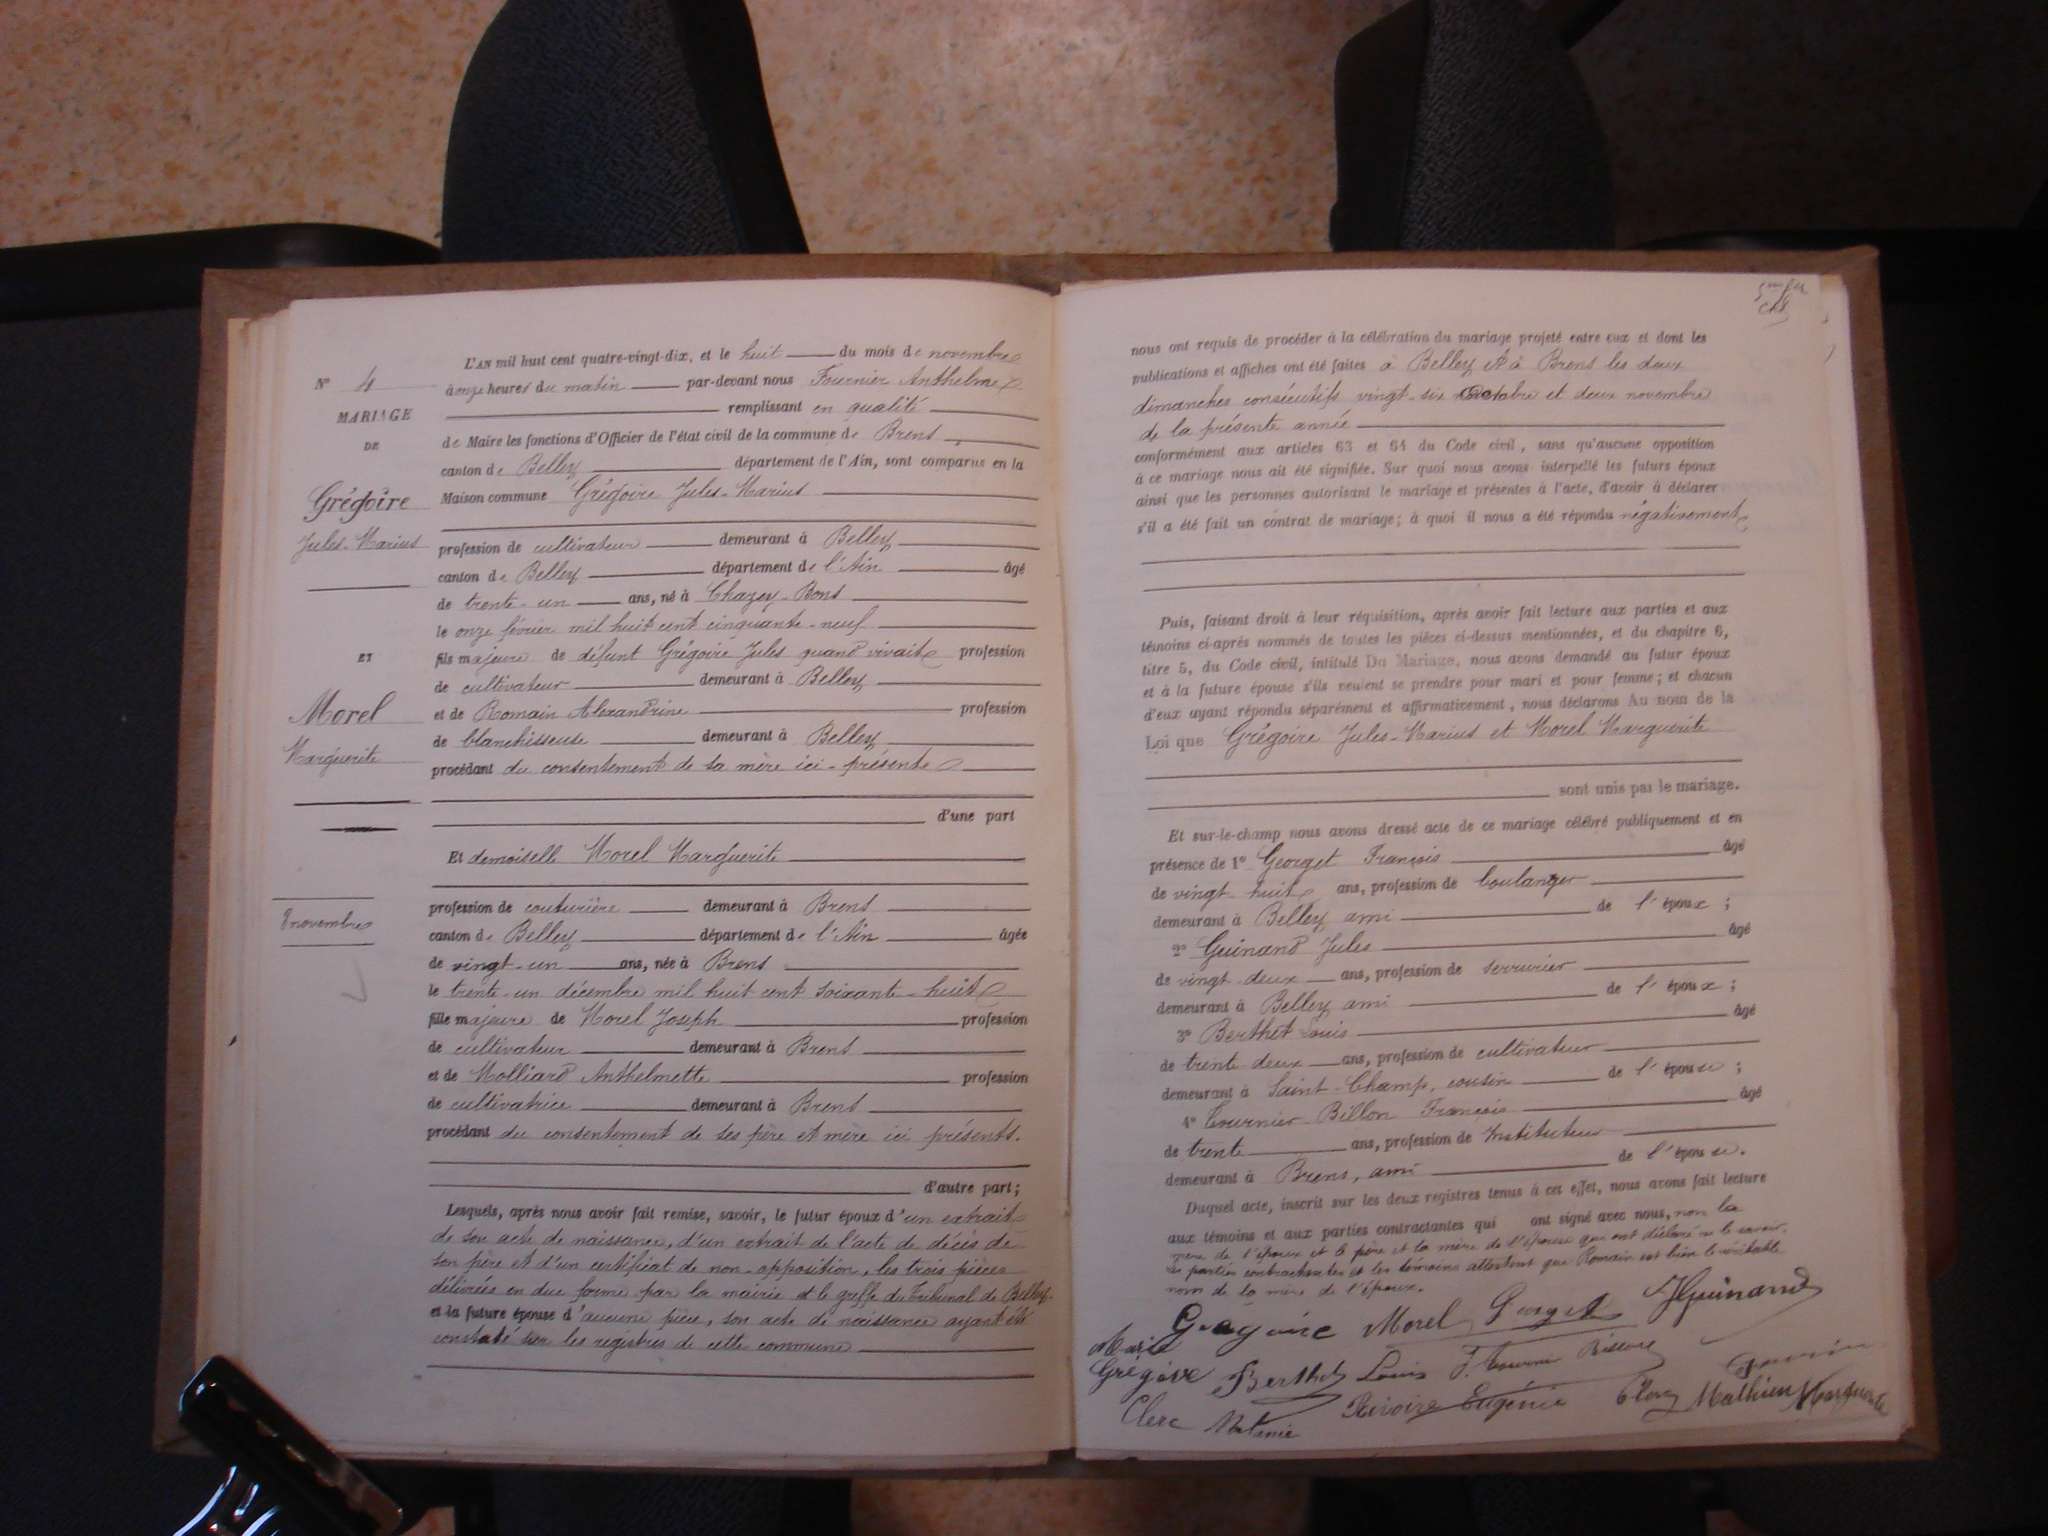 N° 4
MARIAGE
DE
Grégoire
Jules-Marius
ET
Morel
Marguerite
8 novembre
L'AN mil huit cent quatre-vingt-dix, et le huit du mois de novembre
à onze heures du matin par-devant nous Fournier Anthelme
remplissant en qualité
de Maire les fonctions d'Officier de l'état civil de la commune de Brens
canton de Belley département de l'Ain, sont comparus en la
Maison commune Grégoire Jules-Marius
profession de cultivateur demeurant à Belley
canton de Belley département de l'Ain âgé
de trente-un ans, né à Chazey-Bons
le onze février mil huit cent cinquante-neuf
fils majeure de défunt Grégoire Jules quand vivait profession
de cultivateur demeurant à Belley
et de Romain Alexandrine profession
de blanchisseuse demeurant à Belley
procédant du consentement de sa mère ici-présente
d'une part
Et demoiselle Morel Marguerite
profession de couturière demeurant à Brens
canton de Belley département de l'Ain âgée
de vingt-un ans, née à Brens
le trente-un décembre mil huit cent soixante-huit
fille majeure de Morel Joseph profession
de cultivateur demeurant à Brens
et de Molliard Anthelmette profession
de cultivatrice demeurant à Brens
procédant du consentement de ses père et mère ici présents.
d'autre part;
Lesquels, après nous avoir fait remise, savoir, le futur époux d'un extrait
de son acte de naissance, d'un extrait de l'acte de décès de
son père et d'un certificat de non-opposition, les trois pièces
délivrées en due forme par la mairie et le greffe du Tribunal de Belley.
et la future épouse d'aucune pièce, son acte de naissance ayant été
constaté sur les registres de cette commune
nous ont requis de procéder à la célébration du mariage projeté entre eux et dont les
publications et affiches ont été faites à Belley et à Brens les deux
dimanches consécutifs vingt-six Octobre et deux novembre
de la présente année
conformément aux articles 63 et 64 du Code civil, sans qu'aucune opposition
à ce mariage nous ait été signifiée. Sur quoi nous avons interpellé les futurs époux
ainsi que les personnes autorisant le mariage et présentes à l'acte, d'avoir à déclarer
s'il a été fait un contrat de mariage; à quoi il nous a été répondu négativement
Puis, faisant droit à leur réquisition, après avoir fait lecture aux parties et aux
témoins ci-après nommés de toutes les pièces ci-dessus mentionnées, et du chapitre 6,
titre 5, du Code civil, intitulé Du Mariage, nous avons demandé au futur époux
et à la future épouse s'ils veulent se prendre pour mari et pour femme; et chacun
d'eux ayant répondu séparément et affirmativement, nous déclarons Au nom de la
Loi que Grégoire Jules-Marius et Morel Marguerite
sont unis par le mariage.
Et sur-le-champ nous avons dressé acte de ce mariage célébré publiquement et en
présence de 1° Georget François âgé
de vingt huit ans, profession de boulanger
demeurant à Belley ami de l'époux;
2° Guinand Jules âgé
de vingt deux ans, profession de serrurier
demeurant à Belley ami de l'époux;
3° Berthet Louis âgé
de trente deux ans, profession de cultivateur
demeurant à Saint-Champ, cousin de l'épouse;
4° Tournier-Billon François âgé
de trente ans, profession de Instituteur
demeurant à Brens, ami de l'épouse.
Duquel acte, inscrit sur les deux registres tenus à cet effet, nous avons fait lecture
aux témoins et aux parties contractantes qui ont signé avec nous, non la
mère de l'époux et le père et la mère de l'épouse qui ont déclaré ne le savoir.
les parties contractantes et les témoins attestent que Romain est bien le véritable
nom de la mère de l'époux.
Grégoire Morel Georget JGuinand
Marie
Grégoire Berthet Louis F. Tournier Billon
Clerc Mélanie Rivoire Eugénie Mathieu Marguerite